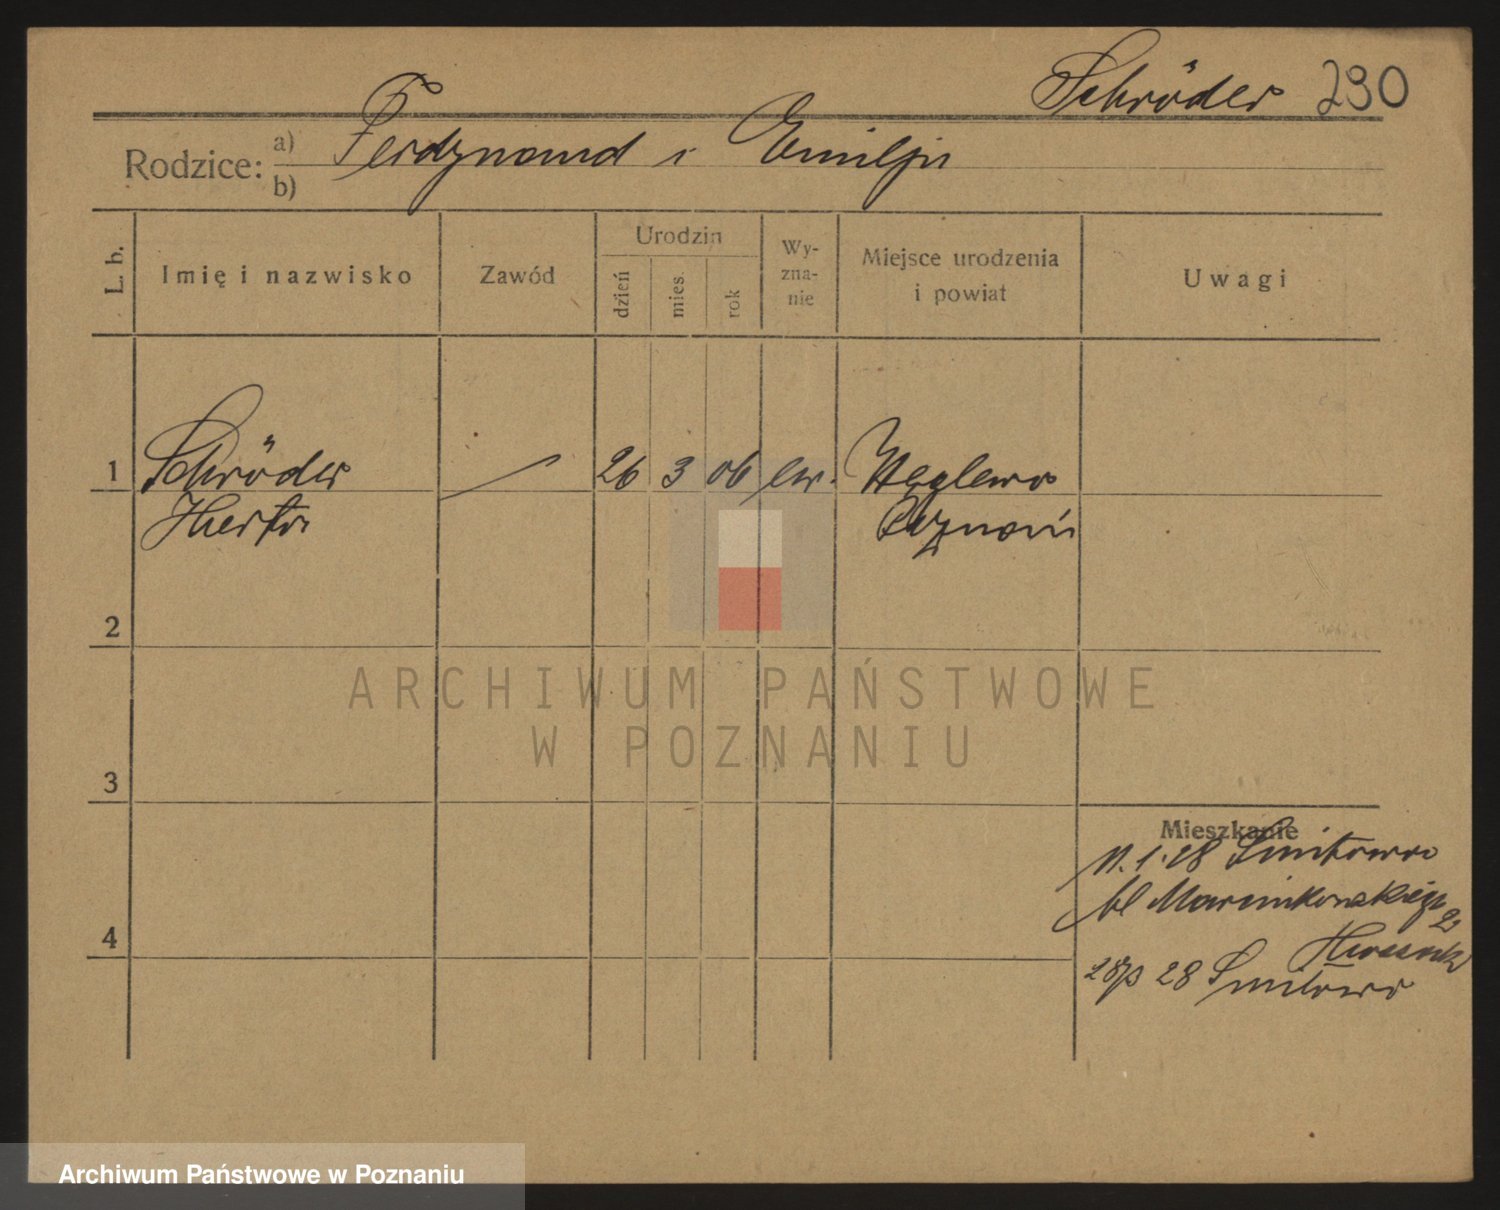 Schröder 290
Rodzice: a) Ferdynand i Emilja
b)
L. b.
Imię i nazwisko
Zawód
Urodzin
dzień
mies.
rok
Wy-
zna-
nie
Miejsce urodzenia
i powiat
Uwagi
1 Schröder 26 3 06 ew. Węglewo
Herta Poznań
2
3
4
ARCHIWUM PAŃSTWOWE
W POZNANIU
Mieszkanie
11.1.28 Smitowo
Marcinkowskiego 2
28 Smitowo
Archiwum Państwowe w Poznaniu